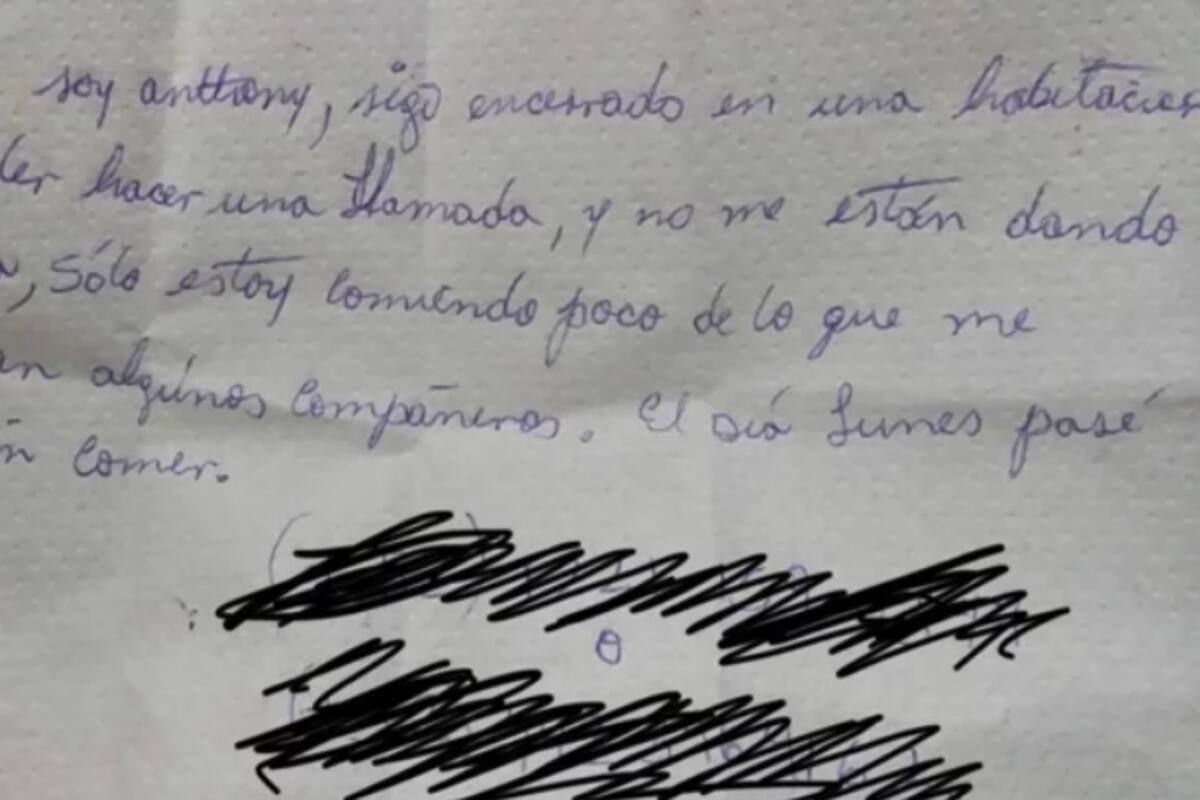 soy anthony, sigo encerrado en una habitación
der hacer una llamada, y no me están dando
, sólo estoy comiendo poco de lo que me
an algúnos compañeros. El día Lunes pasé
n comer.
o